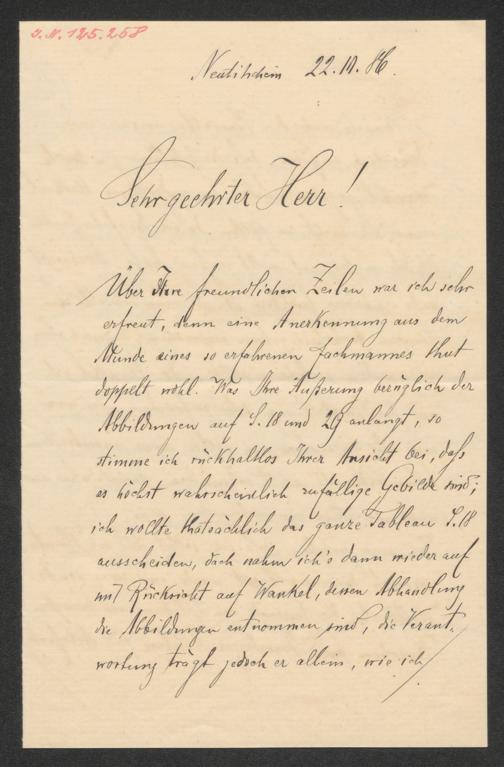 J.N. 125.258
Neutitschein 22.11.86.
Sehr geehrter Herr!
Über Ihre freundlichen Zeilen war ich sehr
erfreut, denn eine Anerkennung aus dem
Munde eines so erfahrenen Fachmannes thut
doppelt wohl. Was Ihre Äußerung bezüglich der
Abbildungen auf S. 18 und 29 anlangt, so
stimme ich rückhaltlos Ihrer Ansicht bei, daſs
es höchst wahrscheinlich zufällige Gebilde sind;
ich wollte thatsächlich das ganze Tableau S. 18
ausscheiden, doch nahm ich's dann wieder auf
mit Rücksicht auf Wankel, dessen Abhandlung
die Abbildungen entnommen sind, die Verant-
wortung trägt jedoch er allein, wie ich